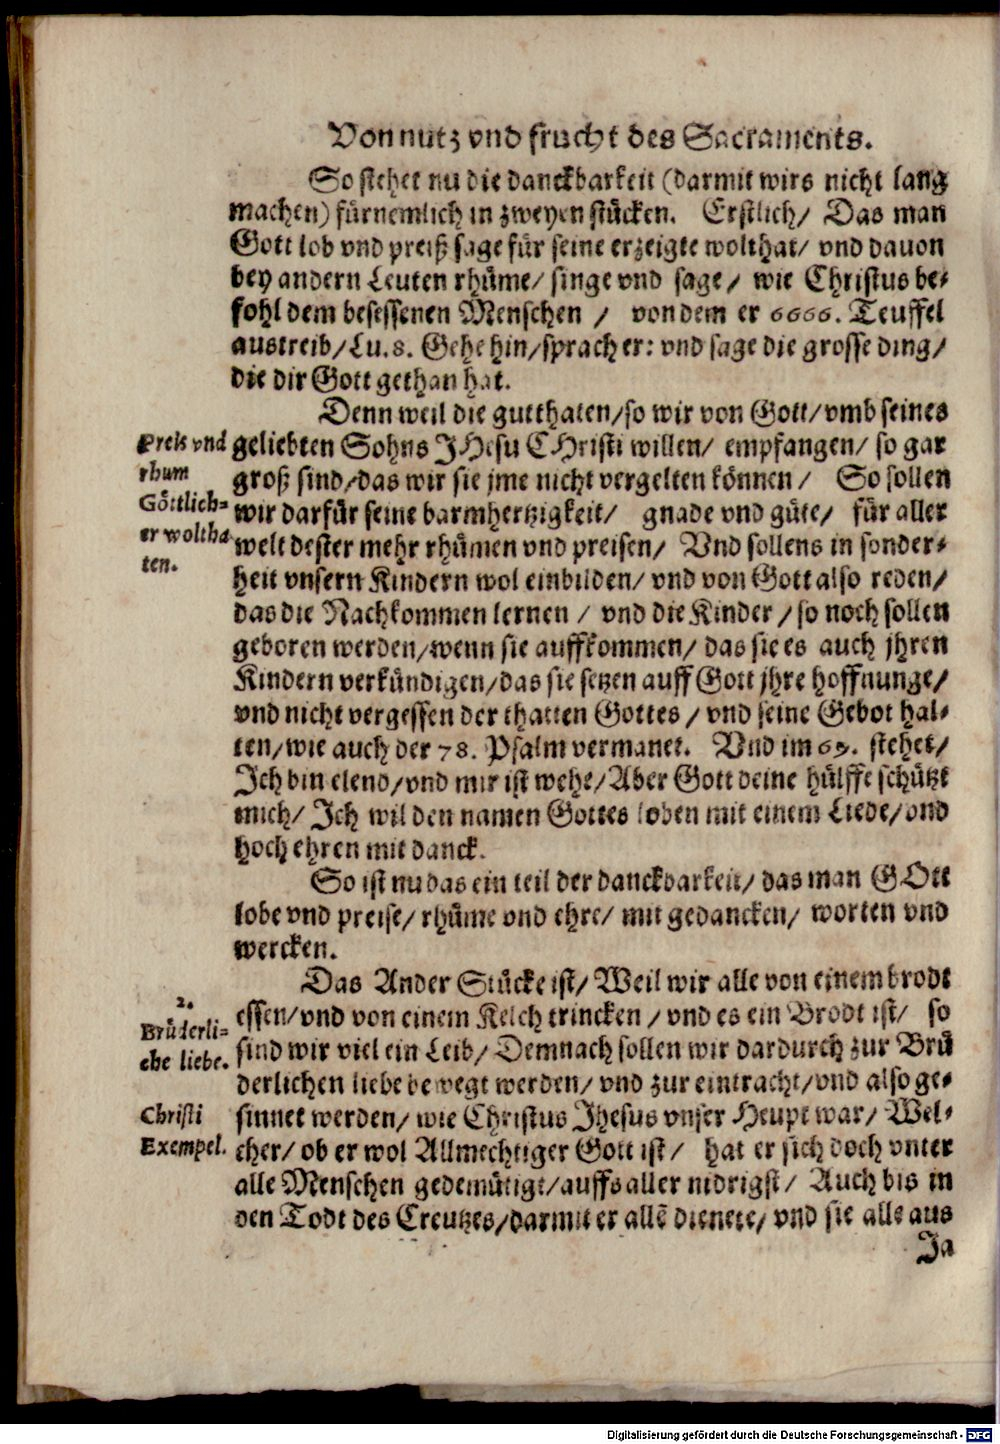 Von nutz vnd frucht des Sacraments.
So stehet nu die danckbarkeit (darmit wirs nicht lang
machen) fürnemlich in zweyen stücken. Erstlich/ Das man
Gott lob vnd preiß sage für seine erzeigte wolthat/ vnd dauon
bey andern Leuten rhüme/ singe vnd sage/ wie Christus be-
fohl dem besessenen Menschen / von dem er 6666. Teuffel
austreib/Lu.8. Gehe hin/sprach er: vnd sage die grosse ding/
die dir Gott gethan hat.
Denn weil die gutthaten/so wir von Gott/vmb seines
Preis vnd
rhum
Göttlich-
er woltha
ten.
geliebten Sohns JHesu CHristi willen/ empfangen/ so gar
groß sind/das wir sie jme nicht vergelten können / So sollen
wir darfür seine barmhertzigkeit/ gnade vnd güte/ für aller
welt dester mehr rhümen vnd preisen/ Vnd sollens in sonder-
heit vnsern Kindern wol einbilden/ vnd von Gott also reden/
das die Nachkommen lernen / vnd die Kinder / so noch sollen
geboren werden/wenn sie auffkommen/ das sie es auch jhren
Kindern verkündigen/das sie setzen auff Gott jhre hoffnunge/
vnd nicht vergessen der thatten Gottes / vnd seine Gebot hal-
ten/wie auch der 78. Psalm vermanet. Vnd im 69. stehet/
Ich bin elend/vnd mir ist wehe/Aber Gott deine hülffe schützt
mich/ Ich wil den namen Gottes loben mit einem Liede/vnd
hoch ehren mit danck.
So ist nu das ein teil der danckbarkeit/ das man GOtt
lobe vnd preise/ rhüme vnd ehre/ mit gedancken/ worten vnd
wercken.
Das Ander Stücke ist/ Weil wir alle von einem brodt
2.
Brüderli-
che liebe.
essen/vnd von einem Kelch trincken / vnd es ein Brodt ist/ so
sind wir viel ein Leib/ Demnach sollen wir dardurch zur Brü
derlichen liebe bewegt werden/ vnd zur eintracht/vnd also ge-
Christi
Exempel.
sinnet werden/ wie Christus Jhesus vnser Heupt war/ Wel-
cher/ ob er wol Allmechtiger Gott ist/ hat er sich doch vnter
alle Menschen gedemütigt/auffs aller nidrigst/ Auch bis in
den Todt des Creutzes/darmit er allẽ dienete/ vnd sie alle aus
Ja
Digitalisierung gefördert durch die Deutsche Forschungsgemeinschaft - DFG